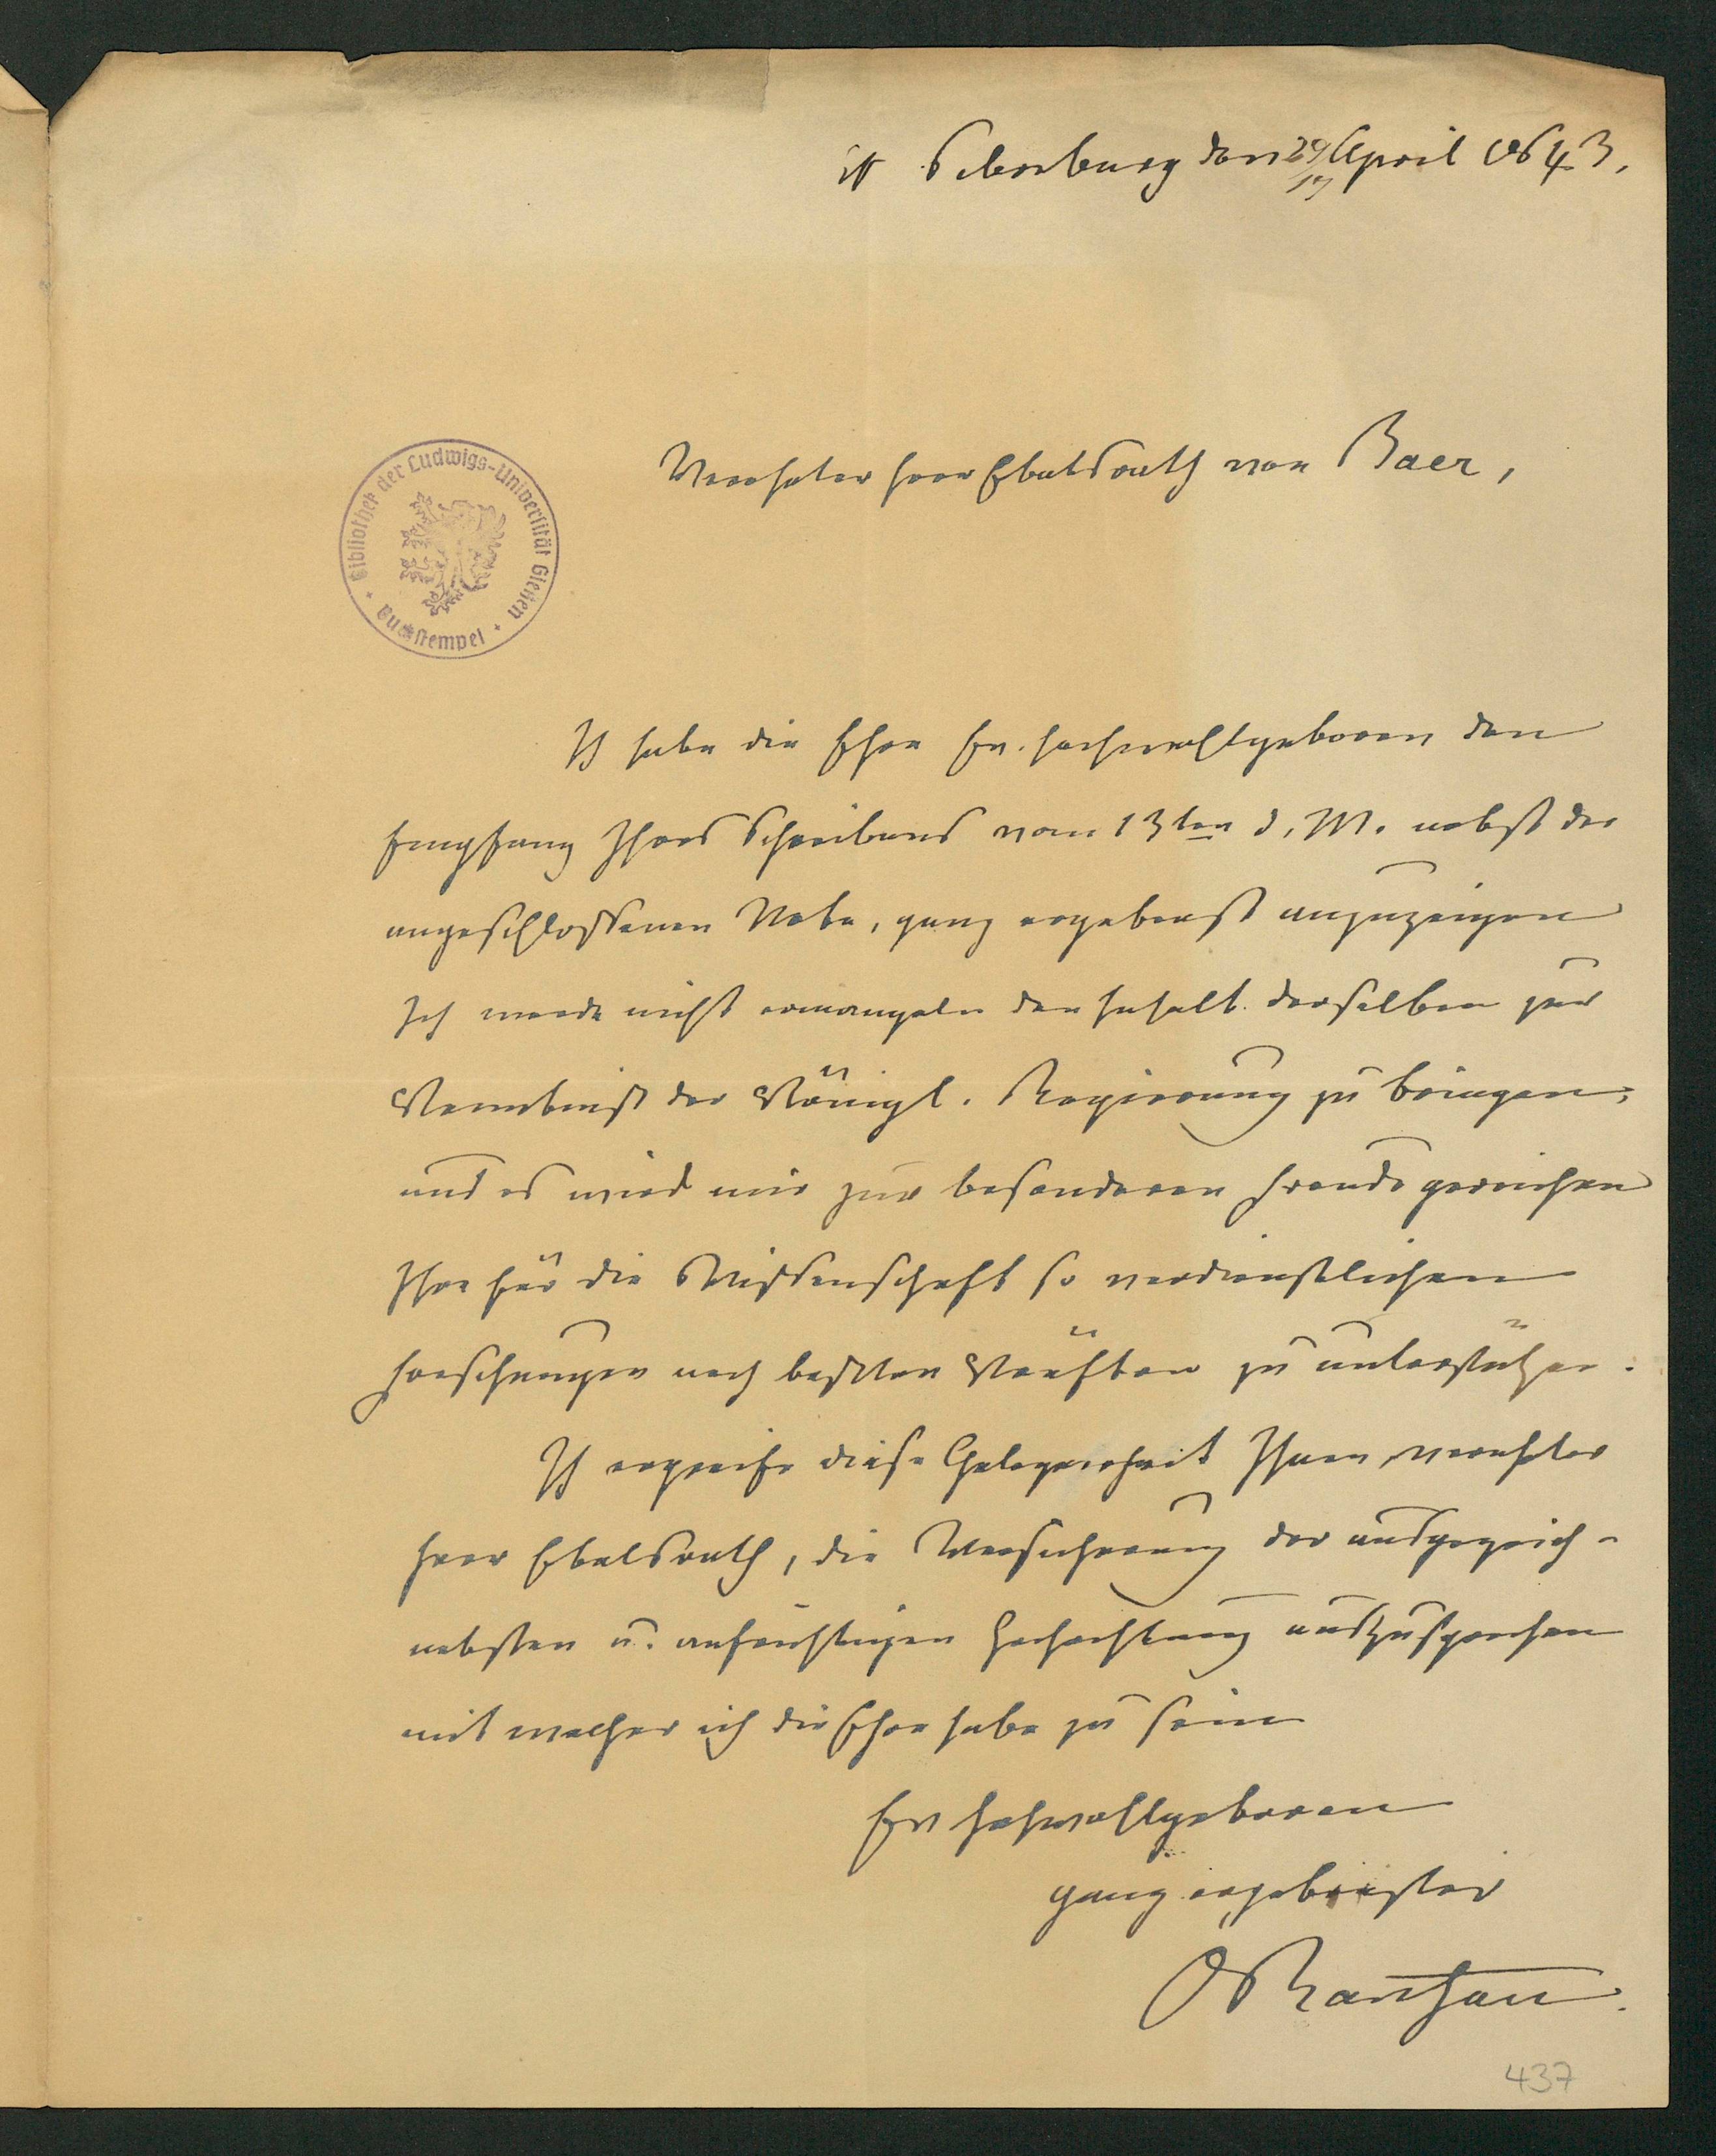 St Petersburg den 29/17 April 1843.
Verehrter Herr Etatsrath von Baer,
Bibliothek der Ludwigs-Universität Gießen
Buchstempel
Ich habe die Ehre Ew. Hochwohlgeboren den
Empfang Ihres Schreibens vom 13ten d. M. nebst der
angeschlossenen Note, ganz ergebenst anzuzeigen
Ich werde nicht ermangeln den Inhalt derselben zur
Kenntniß der Königl. Regierung zu bringen,
und es wird mir zur besonderen Freude gereichen
Ihre für die Wissenschaft so verdienstlichen
Forschungen nach besten Kräften zu unterstützen.
Ich ergreife diese Gelegenheit Ihnen, verehrter
Herr Etatsrath, die Versicherung der ausgezeich-
netsten u. aufrichtigen Hochachtung auszusprechen
mit welcher ich die Ehre habe zu sein
Ew Hochwohlgeboren
ganz ergebenster
O Rantzau.
437